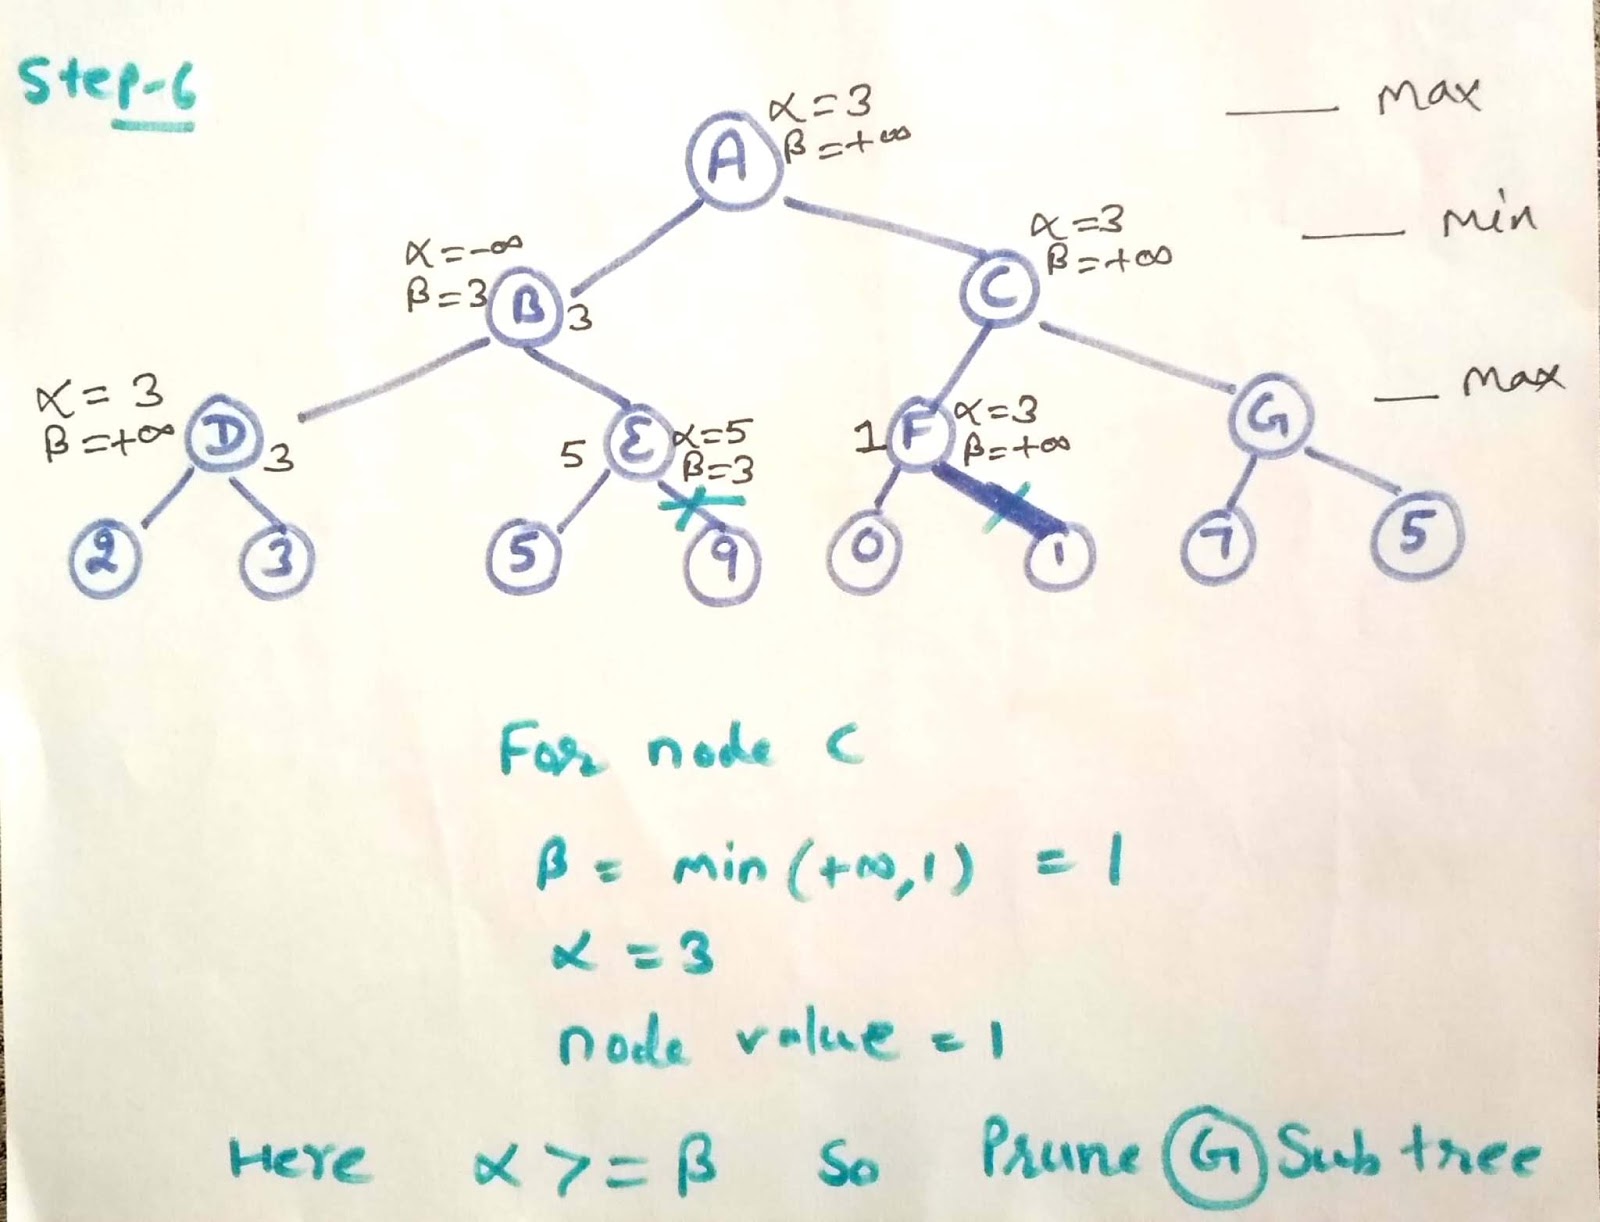 Step-6
α=3
β=+∞
A
max
α=-∞
β=3
B
3
α=3
β=+∞
C
min
α=3
β=+∞
D
3
5
E
α=5
β=3
1
F
α=3
β=+∞
G
max
2
3
5
9
0
1
7
5
For node C
β = min (+∞,1) = 1
α = 3
node value = 1
Here α >= β so Prune G Sub tree